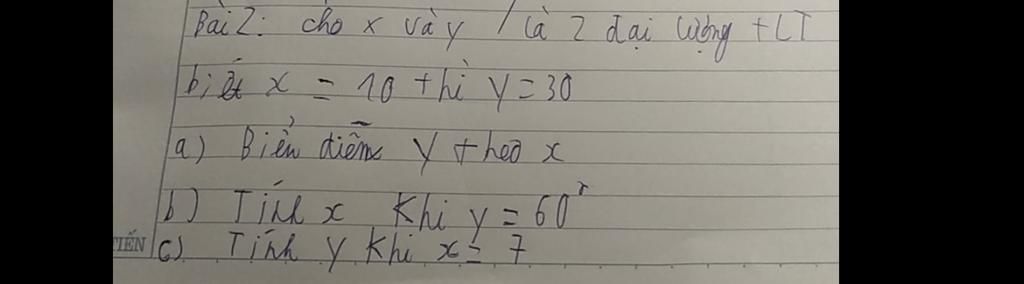 Bài 2: cho x và y / là 2 đại lượng + LT
biết x = 10 thì y = 30
a) Biểu diễn y theo x
b) Tính x Khi y = 60
TIẾN c) Tính y Khi x = 7